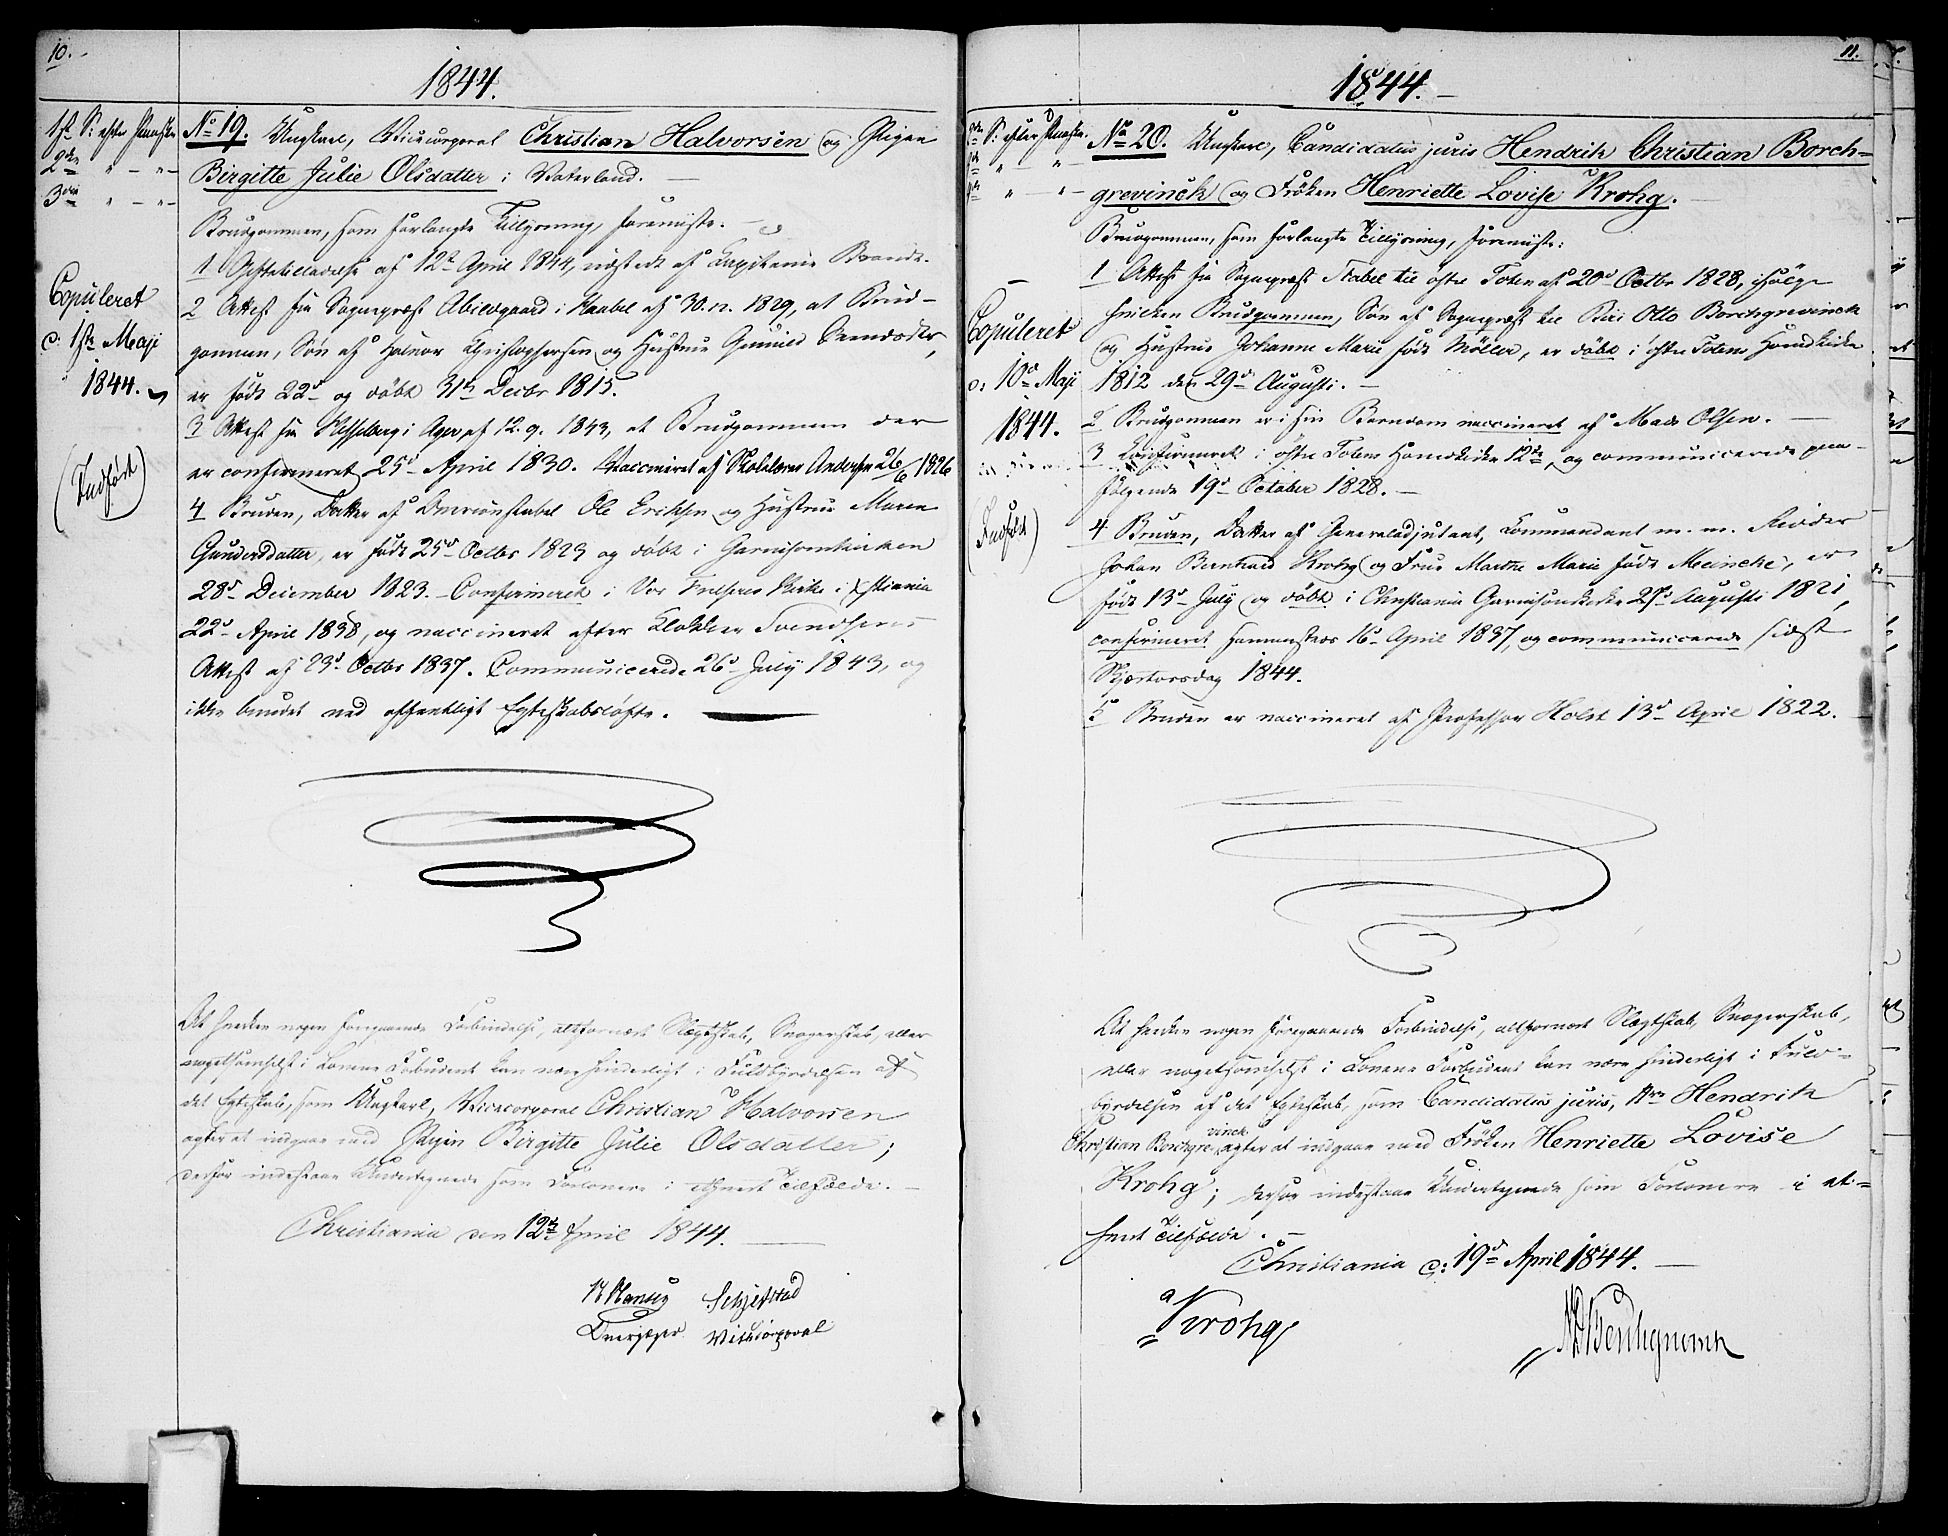 10.
1844.
1ste S: efter Paaske
2den " - " -
3die " - " -
No 19. Ungkarl, Vicecorporal Christian Halvorsen og Pigen
Birgitte Julie Olsdatter i Vaterland.
Brudgommen, som forlangte Tillysning, foreviiste.
1 Giftetilladelse af 12te April 1844, udstedt af Capitaine Brande.
2 Attest fra Sognepræst Abildgaard i af 30.12.1829, at Brud-
gommen, Søn af Halvor Christophersen og Hustrue Gunild
er født 22de og døbt 31te Decbr 1815.
3 Attest fra Hesselberg i Ager af 12.9.1843, at Brudgommen der
er confirmeret 25de April 1830. Vaccineret af Skolelærer Andersen 26/6 1826
4 Bruden, Datter af Ole Eriksen og Hustrue Maren
Gundersdatter, er født 25de Octbr 1823 og døbt i Garnisonskirken
28de December 1823. Confirmeret i Vor Frelsers Kirke i Xstiania
22de April 1838, og vaccineret efter Klokker Svendsens
Attest af 23de Octbr 1837. Communicerede 26de July 1843, og
ikke bundet ved offentligt Egteskabsløfte.
Copuleret
d: 1ste Maji
1844.
(Indført)
At hverken nogen foregaaende Forbindelse, altfornært Slægtskab, Svogerskab, eller
nogetsomhelst i Lovene Forbudent kan være hinderligt i Fuldbyrdelsen af
det Egteskab, som Ungkarl, Vicecorporal Christian Halvorsen
agter at indgaae med Pigen Birgitte Julie Olsdatter;
derfor indestaae Undertegnede som Forlovere i ethvert Tilfælde.
Christiania den 12te April 1844.
Hansen Schjefstad
Overjæger Vicecorporal
11.
1844.
S: efter Paaske.
" -
" - " -
No 20. Ungkarl, Candidatus juris Hendrik Christian Borch-
grevinck og Frøken Henriette Lovise Krohg.
Brudgommen, som forlangte Tillysning, foreviiste:
1 Attest fra Sognepræst Stabel til østre Toten af 20de Octbr 1828, ifølge
hvilken Brudgommen, Søn af Sognepræst til Biri Otto Borchgrevinck
og Hustrue Johanne Marie født Möller, er døbt i østre Totens Hovedkirke
1812 den 29de Augusti.
2 Brudgommen er i sin Barndom vaccineret af Mads Olsen.
3 Confirmeret i østre Totens Hovedkirke 12te, og communicerede paa-
følgende 19de October 1828.
4 Bruden, Datter af Generaladjutant, Commandant m.m. Ridder
Johan Bernhard Krohg og Frue Marthe Marie født Meincke, er
født 13de July og døbt i Christiania Garnisonskirke 27de Augusti 1821,
confirmeret sammesteds 16de April 1837, og communicerede sidst
Skjertorsdag 1844.
5 Bruden er vaccineret af Professor Holst 13de April 1822.
Copuleret
d: 10de Maji
1844.
(Indført)
At hverken nogen foregaaende Forbindelse, altfornært Slægtskab, Svogerskab,
eller nogetsomhelst i Lovene Forbudent kan være hinderligt i Fuld-
byrdelsen af det Egteskab, som Candidatus juris, Hr. Hendrik
Christian Borchgrevinck agter at indgaae med Frøken Henriette Lovise
Krohg; derfor indestaae Undertegnede som Forlovere i et-
hvert Tilfælde.
Christiania d: 19de April 1844.
Krohg
Borchgrevinck